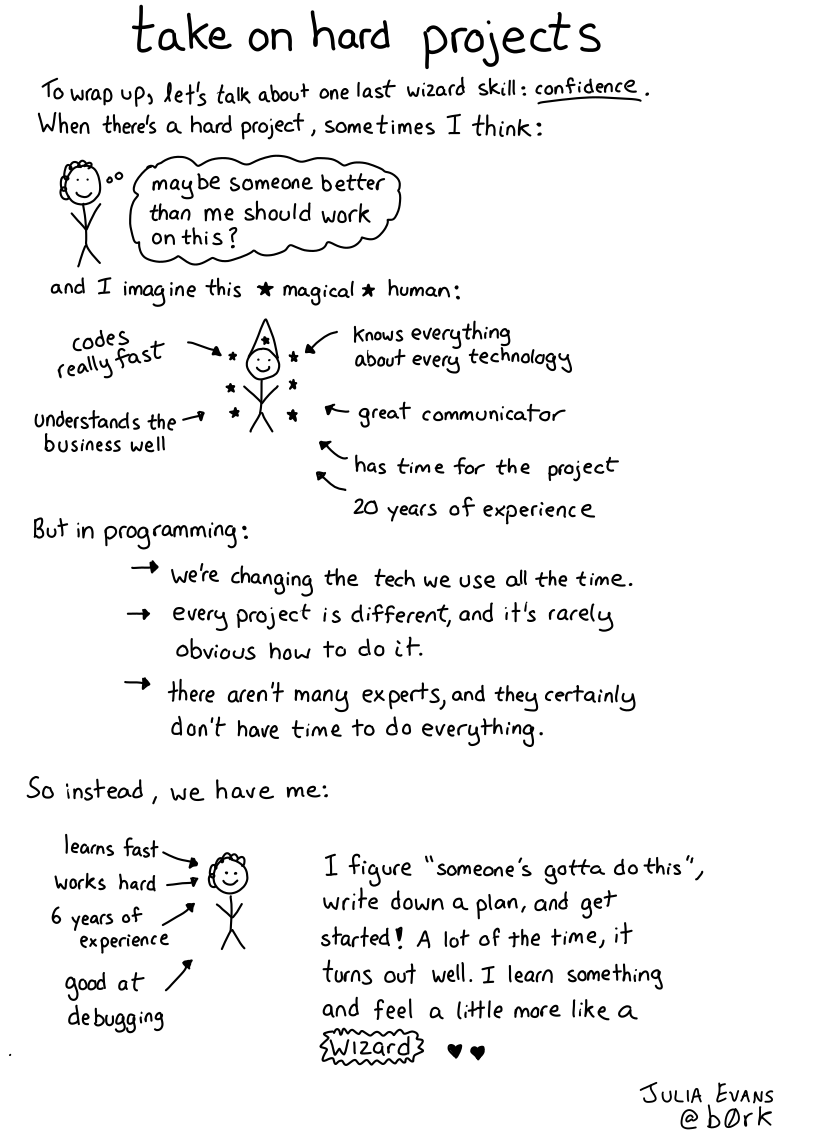 take on hard projects
To wrap up, let's talk about one last wizard skill: confidence.
When there's a hard project, sometimes I think:
maybe someone better
than me should work
on this?
and I imagine this ★ magical ★ human:
codes
really fast
understands the
business well
knows everything
about every technology
great communicator
has time for the project
20 years of experience
But in programming:
→ we're changing the tech we use all the time.
→ every project is different, and it's rarely
obvious how to do it.
→ there aren't many experts, and they certainly
don't have time to do everything.
So instead, we have me:
learns fast
works hard
6 years of
experience
good at
debugging
I figure "someone's gotta do this",
write down a plan, and get
started! A lot of the time, it
turns out well. I learn something
and feel a little more like a
Wizard ♥♥
JULIA EVANS
@b0rk